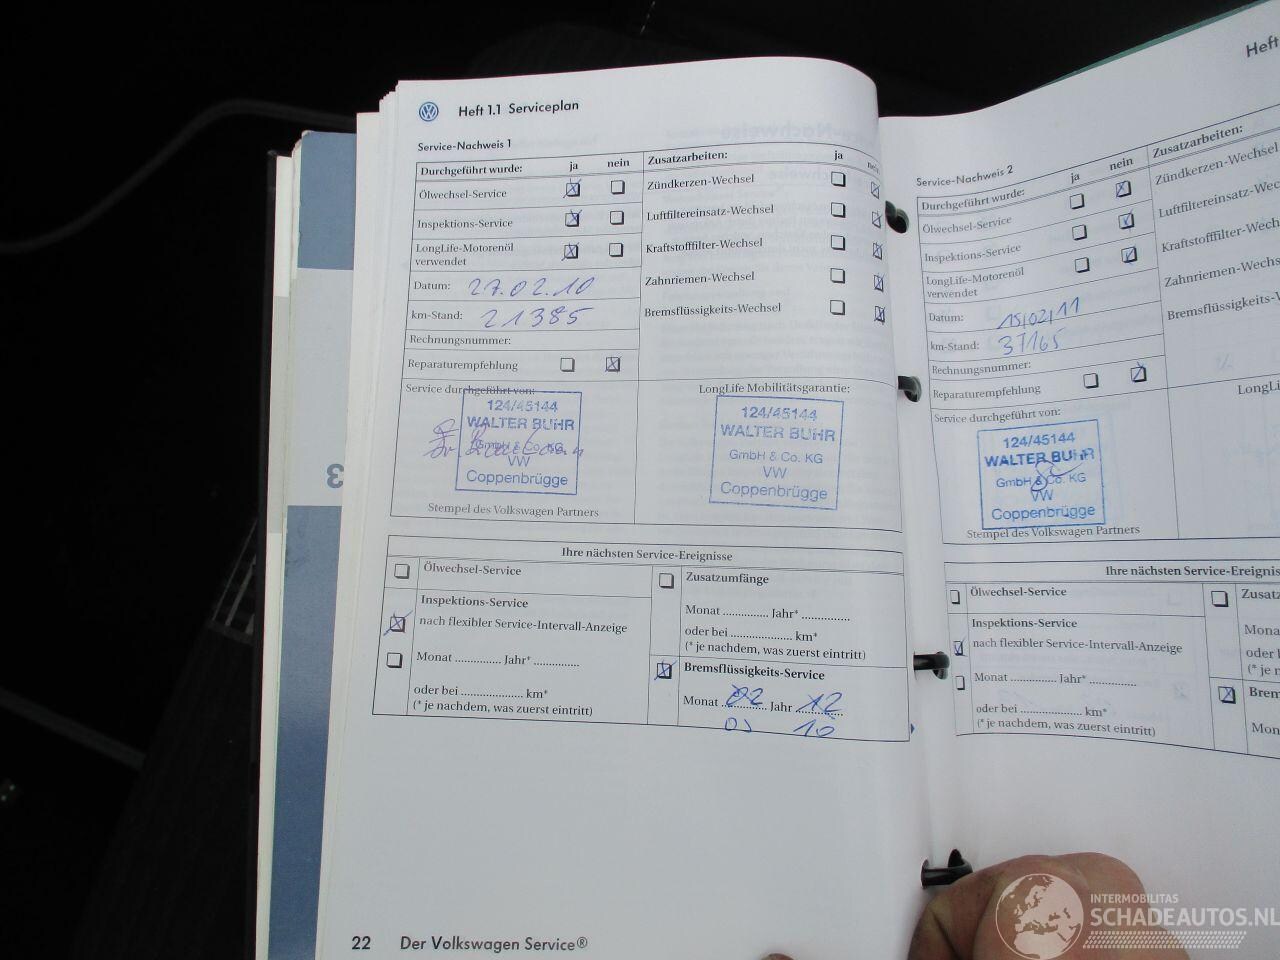 Heft 1.1 Serviceplan
Service-Nachweis 1
Durchgeführt wurde: ja nein
Ölwechsel-Service
Inspektions-Service
LongLife-Motorenöl
verwendet
Datum: 27.02.10
km-Stand: 21385
Rechnungsnummer:
Reparaturempfehlung
Zusatzarbeiten: ja nein
Zündkerzen-Wechsel
Luftfiltereinsatz-Wechsel
Kraftstofffilter-Wechsel
Zahnriemen-Wechsel
Bremsflüssigkeits-Wechsel
Service durchgeführt von:
124/45144
WALTER BUHR
GmbH & Co. KG
VW
Coppenbrügge
Stempel des Volkswagen Partners
LongLife Mobilitätsgarantie:
124/45144
WALTER BUHR
GmbH & Co. KG
VW
Coppenbrügge
Ihre nächsten Service-Ereignisse
Ölwechsel-Service
Inspektions-Service
nach flexibler Service-Intervall-Anzeige
Monat ............... Jahr* ...............
oder bei ..................... km*
(* je nachdem, was zuerst eintritt)
Zusatzumfänge
Monat ............... Jahr* ...............
oder bei ..................... km*
(* je nachdem, was zuerst eintritt)
Bremsflüssigkeits-Service
Monat ............... Jahr 12
22 Der Volkswagen Service®
Heft
Service-Nachweis 2
Durchgeführt wurde: ja nein
Ölwechsel-Service
Inspektions-Service
LongLife-Motorenöl
verwendet
Datum: 15/02/11
km-Stand: 37165
Rechnungsnummer:
Reparaturempfehlung
Zusatzarbeiten:
Zündkerzen-Wechsel
Luftfiltereinsatz-Wec
Kraftstofffilter-Wechs
Zahnriemen-Wechs
Bremsflüssigkeits-
Service durchgeführt von:
124/45144
WALTER BUHR
GmbH & Co. KG
VW
Coppenbrügge
Stempel des Volkswagen Partners
LongLi
Ihre nächsten Service-Ereignis
Ölwechsel-Service
Inspektions-Service
nach flexibler Service-Intervall-Anzeige
Monat ............... Jahr* ...............
oder bei ..................... km*
(* je nachdem, was zuerst eintritt)
Zusatz
Mona
oder b
(* je n
Brem
Mon
3
INTERMOBILITAS
SCHADEAUTOS.NL